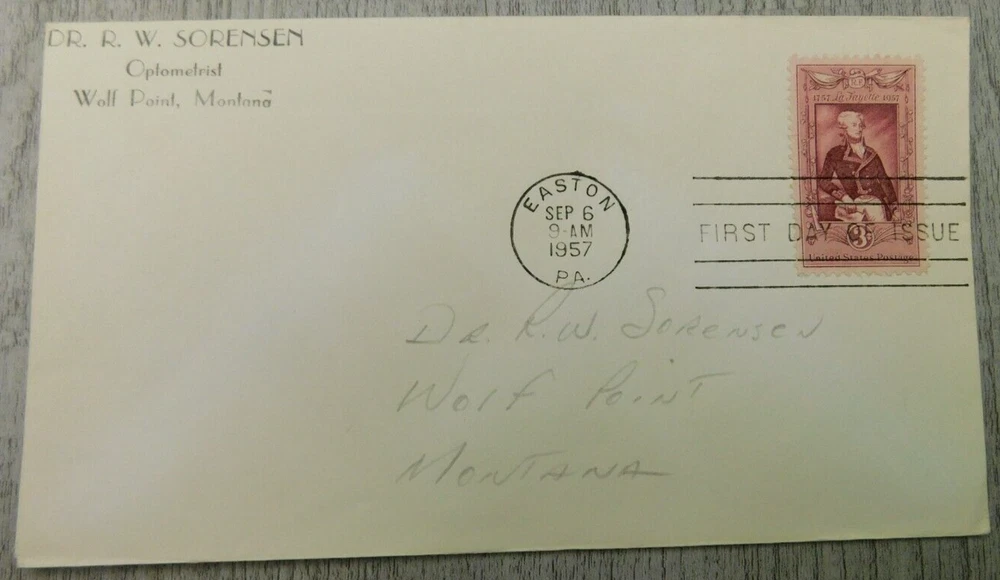 DR. R. W. SORENSEN
Optometrist
Wolf Point, Montana
1757 La Fayette 1957
EASTON
SEP 6
9-AM
1957
PA.
FIRST DAY OF ISSUE
3¢
United States Postage
Dr. R.W. Sorensen
Wolf Point
Montana